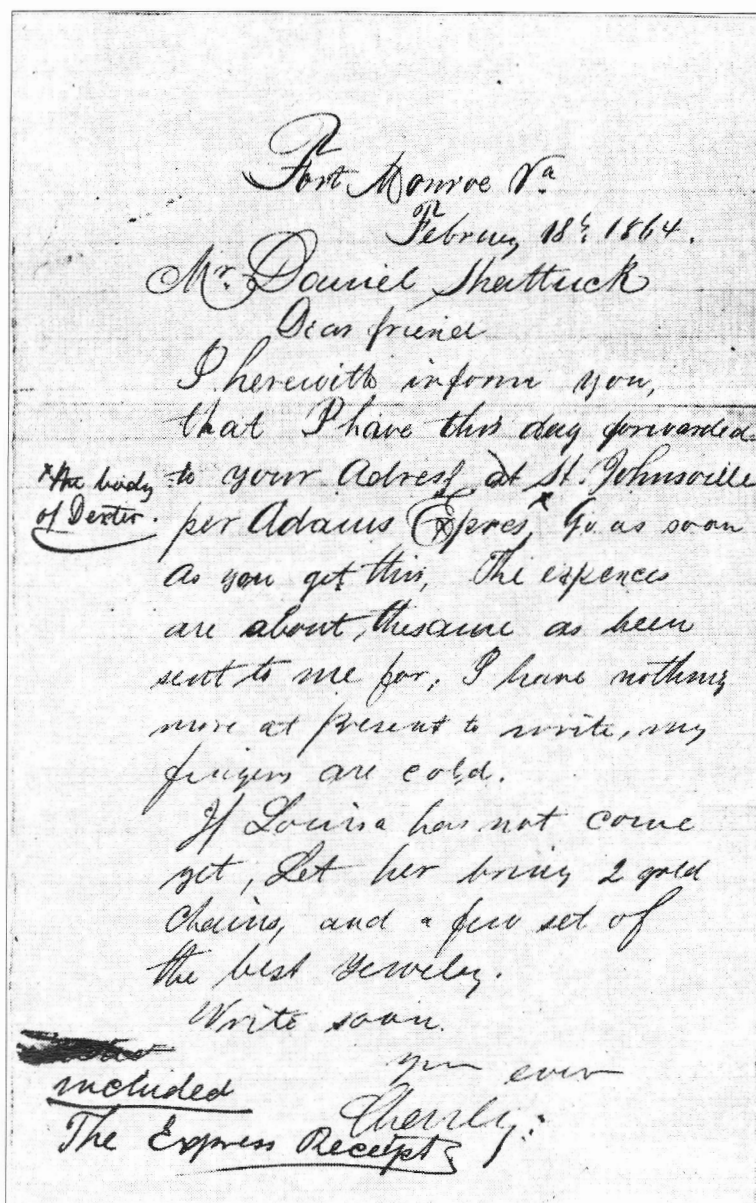 Fort Monroe Va
February 18th. 1864.
Mr. Daniel Shattuck
Dear friend
I herewith inform you,
that I have this day forwarded
to your Adress at St. Johnsville
x the body
of Dexter.
per Adams Expres x Go as soon
as you get this, The expences
are about, thesame as been
sent to me for; I have nothing
more at present to write, my
fingers are cold.
If Louisa has not come
yet, Let her bring 2 gold
chains, and a few set of
the best Yewelry.
Write soon.
your ever
included
The Express Receipt